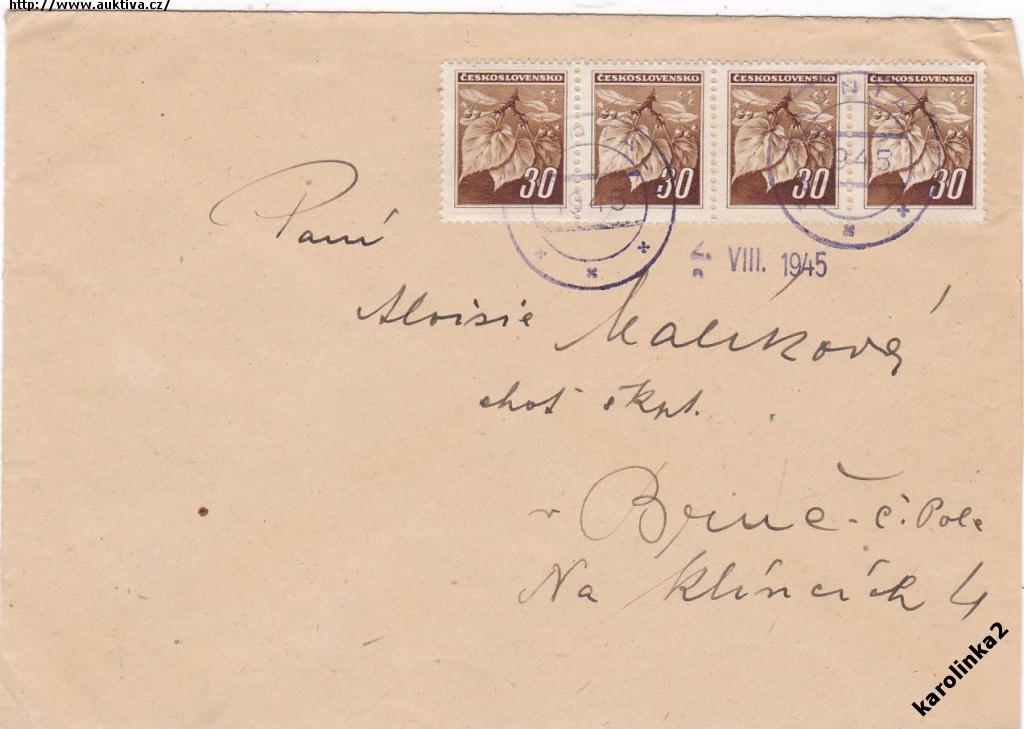 http://www.auktiva.cz/
ČESKOSLOVENSKO ČESKOSLOVENSKO ČESKOSLOVENSKO ČESKOSLOVENSKO
30 30 30 30
1945 1945
VIII. 1945
Paní
Aloisie Malíková
choť škpt.
v Brně - Č. Pole
Na Klíncích 4
karolinka2